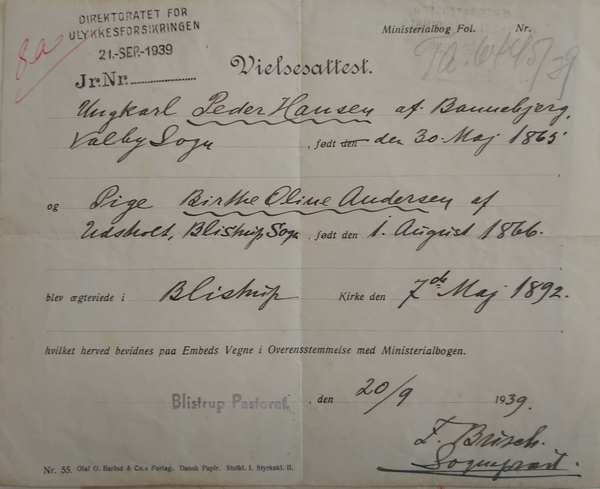 DIREKTORATET FOR
ULYKKESFORSIKRINGEN
21.-SEP.-1939
Jr.Nr.
8a
Ministerialbog Fol. Nr.
Vielsesattest.
Ungkarl Peder Hansen af Bannebjerg,
Valby Sogn , født den den 30. Maj 1865
og Pige Birthe Oline Andersen af
Udsholt, Blistrup Sogn , født den 1. August 1866.
blev ægteviede i Blistrup Kirke den 7de Maj 1892.
hvilket herved bevidnes paa Embeds Vegne i Overensstemmelse med Ministerialbogen.
Blistrup Pastorat , den 20/9 1939.
F. Busch.
Sognepræst.
Nr. 55. Olaf O. Barfod & Co.s Forlag. Dansk Papir. Stofkl. I. Styrkekl. II.